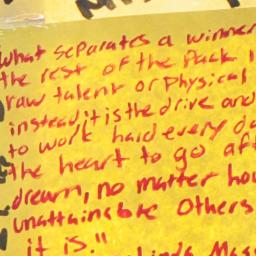 what separates a winner
the rest of the Pack
raw talent or Physical
instead, it is the drive and
to work hard every da
the heart to go aft
dream, no matter ho
unattainable Others
it is."
Linda Mas